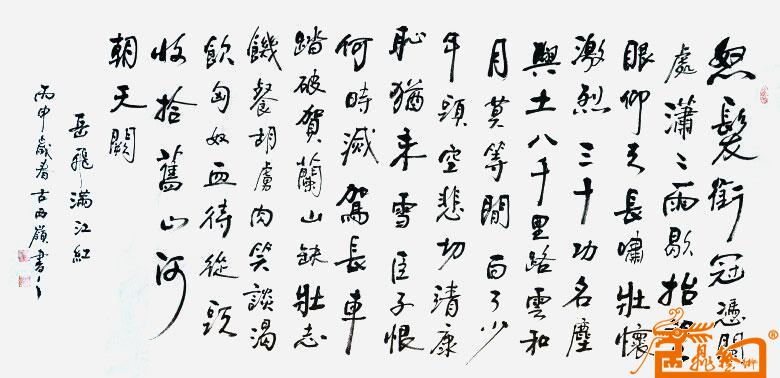 怒髮衝冠憑闌
處瀟〻雨歇抬望
眼仰天長嘯壯懷
激烈三十功名塵
與土八千里路雲和
月莫等閒白了少
年頭空悲切靖康
恥猶未雪臣子恨
何時滅駕長車
踏破賀蘭山缺壯志
饑餐胡虜肉笑談渴
飲匈奴血待從頭
收拾舊山河
朝天闕
岳飛滿江紅
丙申歲春古西嶺書之